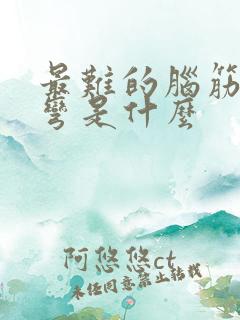 最難的腦筋
彎是什麼
阿悠悠ct
未經同意禁止轉載